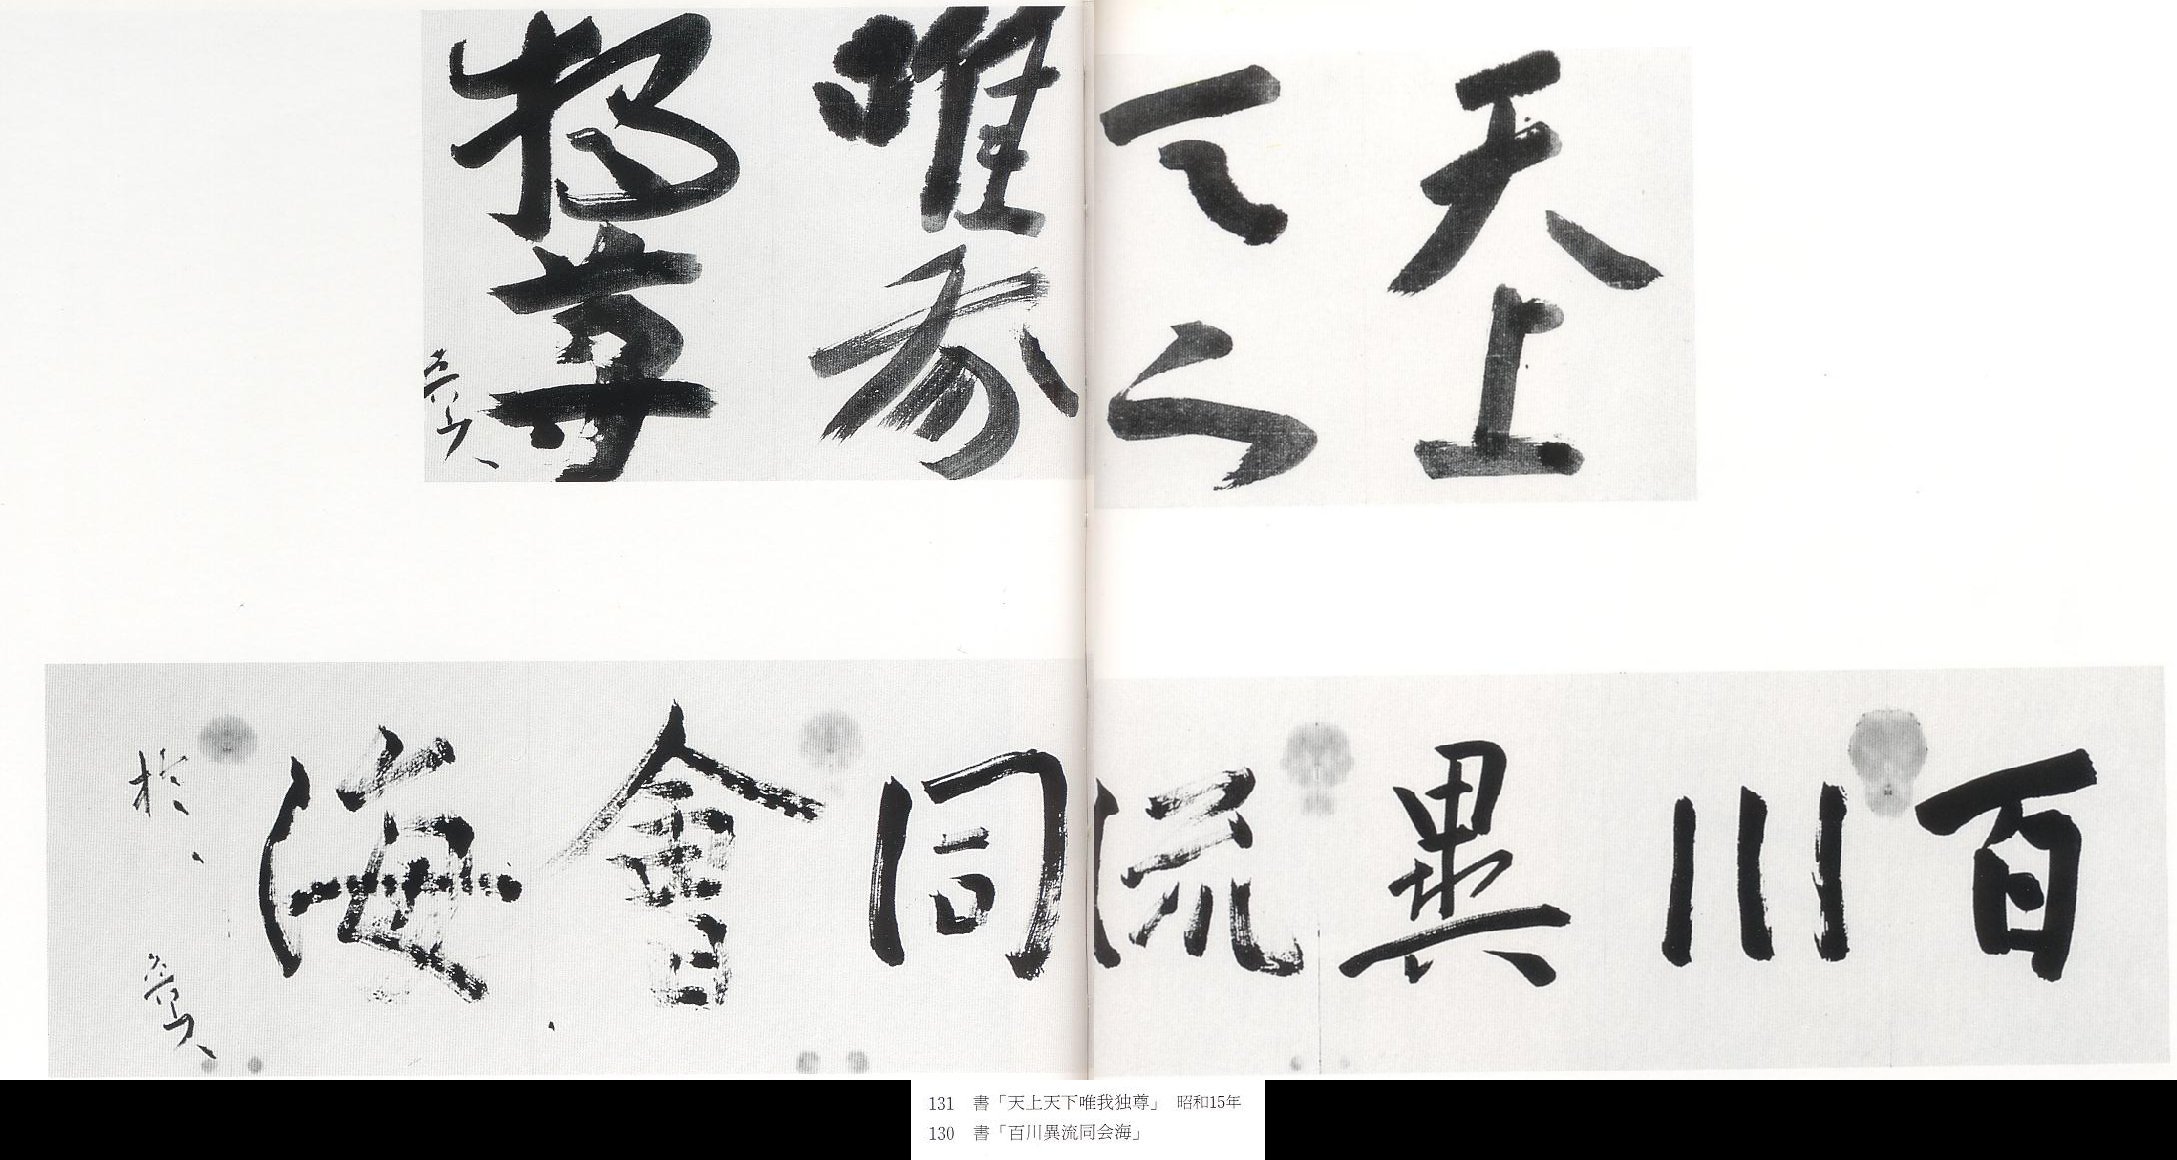 天上
天下
唯我
独尊
百川異流同會海
於
131 書「天上天下唯我独尊」 昭和15年
130 書「百川異流同会海」